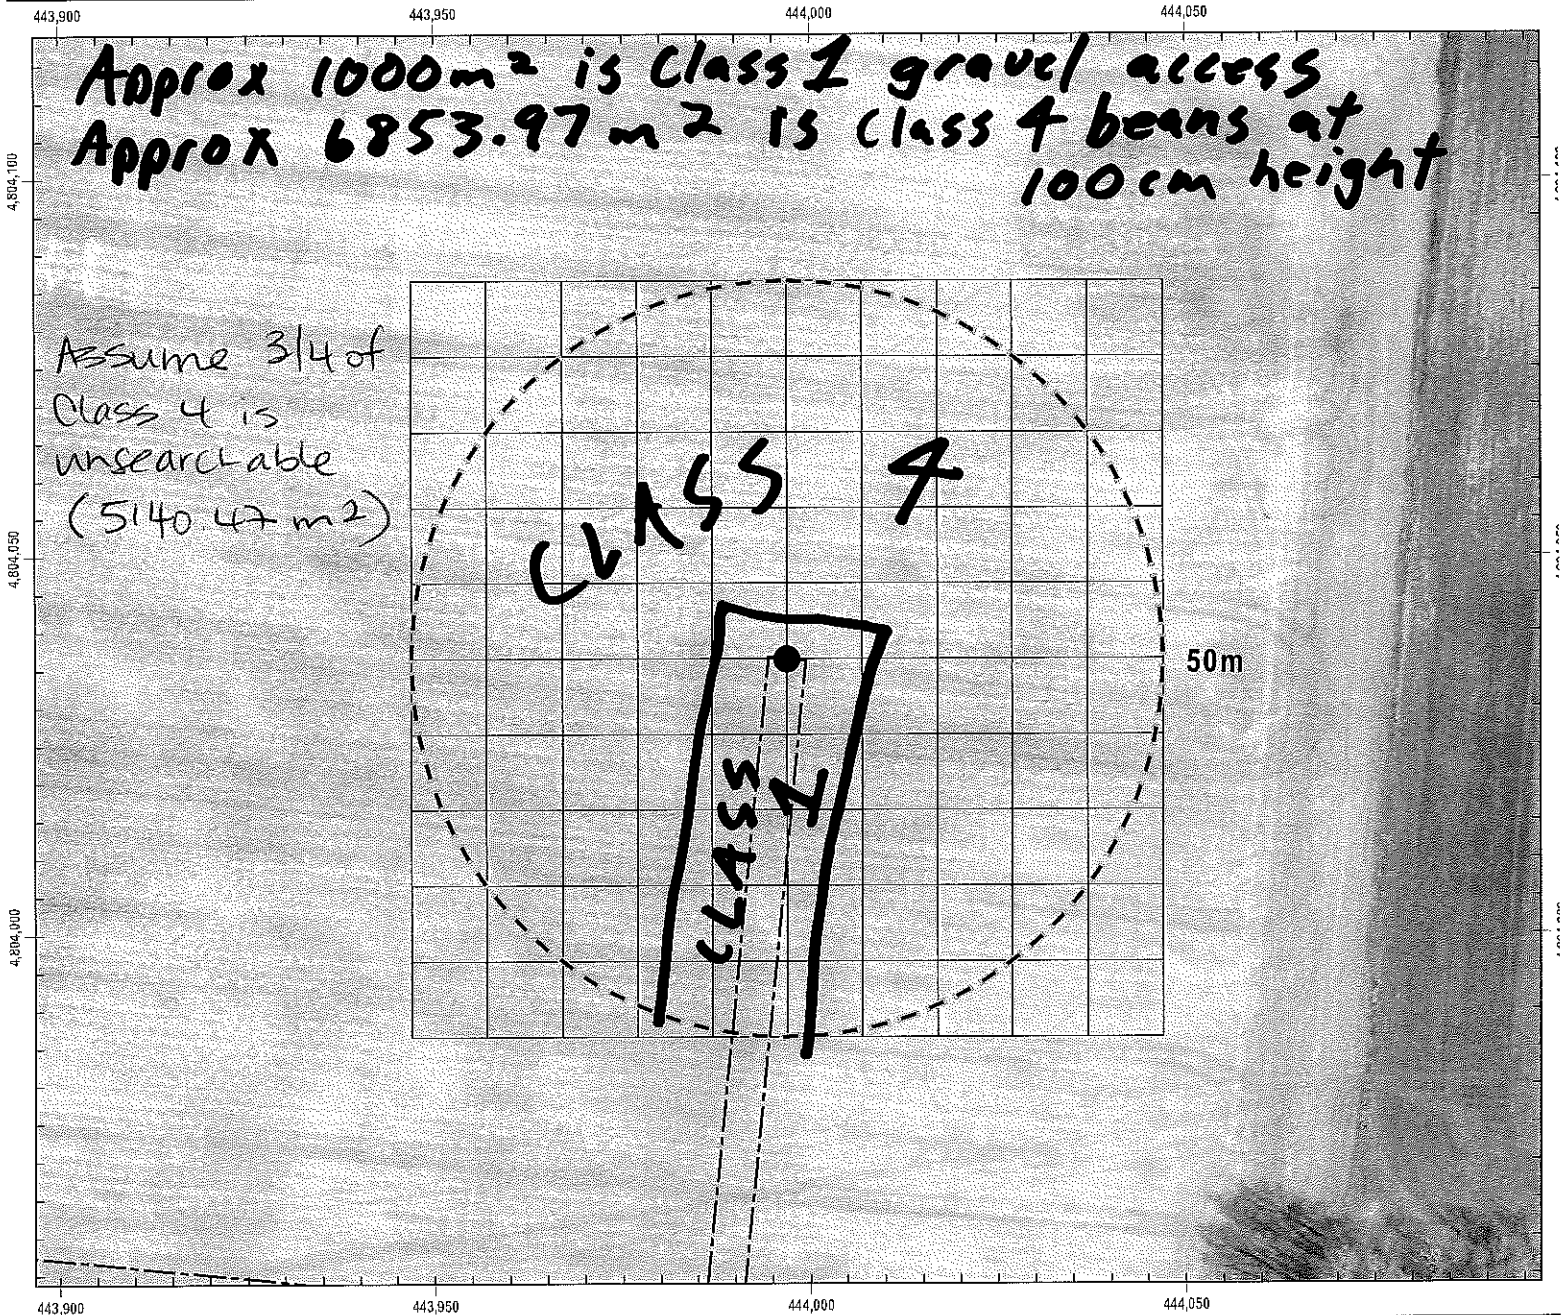 443,900 443,950 444,000 444,050
Approx 1000m² is Class 1 gravel access
Approx 6853.97 m2 is Class 4 beans at
100cm height
4,804,100
Assume 3/4 of
Class 4 is
unsearchable
(5140 47 m2)
CLASS 4
4,804,050
50m
CLASS 1
4,804,000
443,900 443,950 444,000 444,050